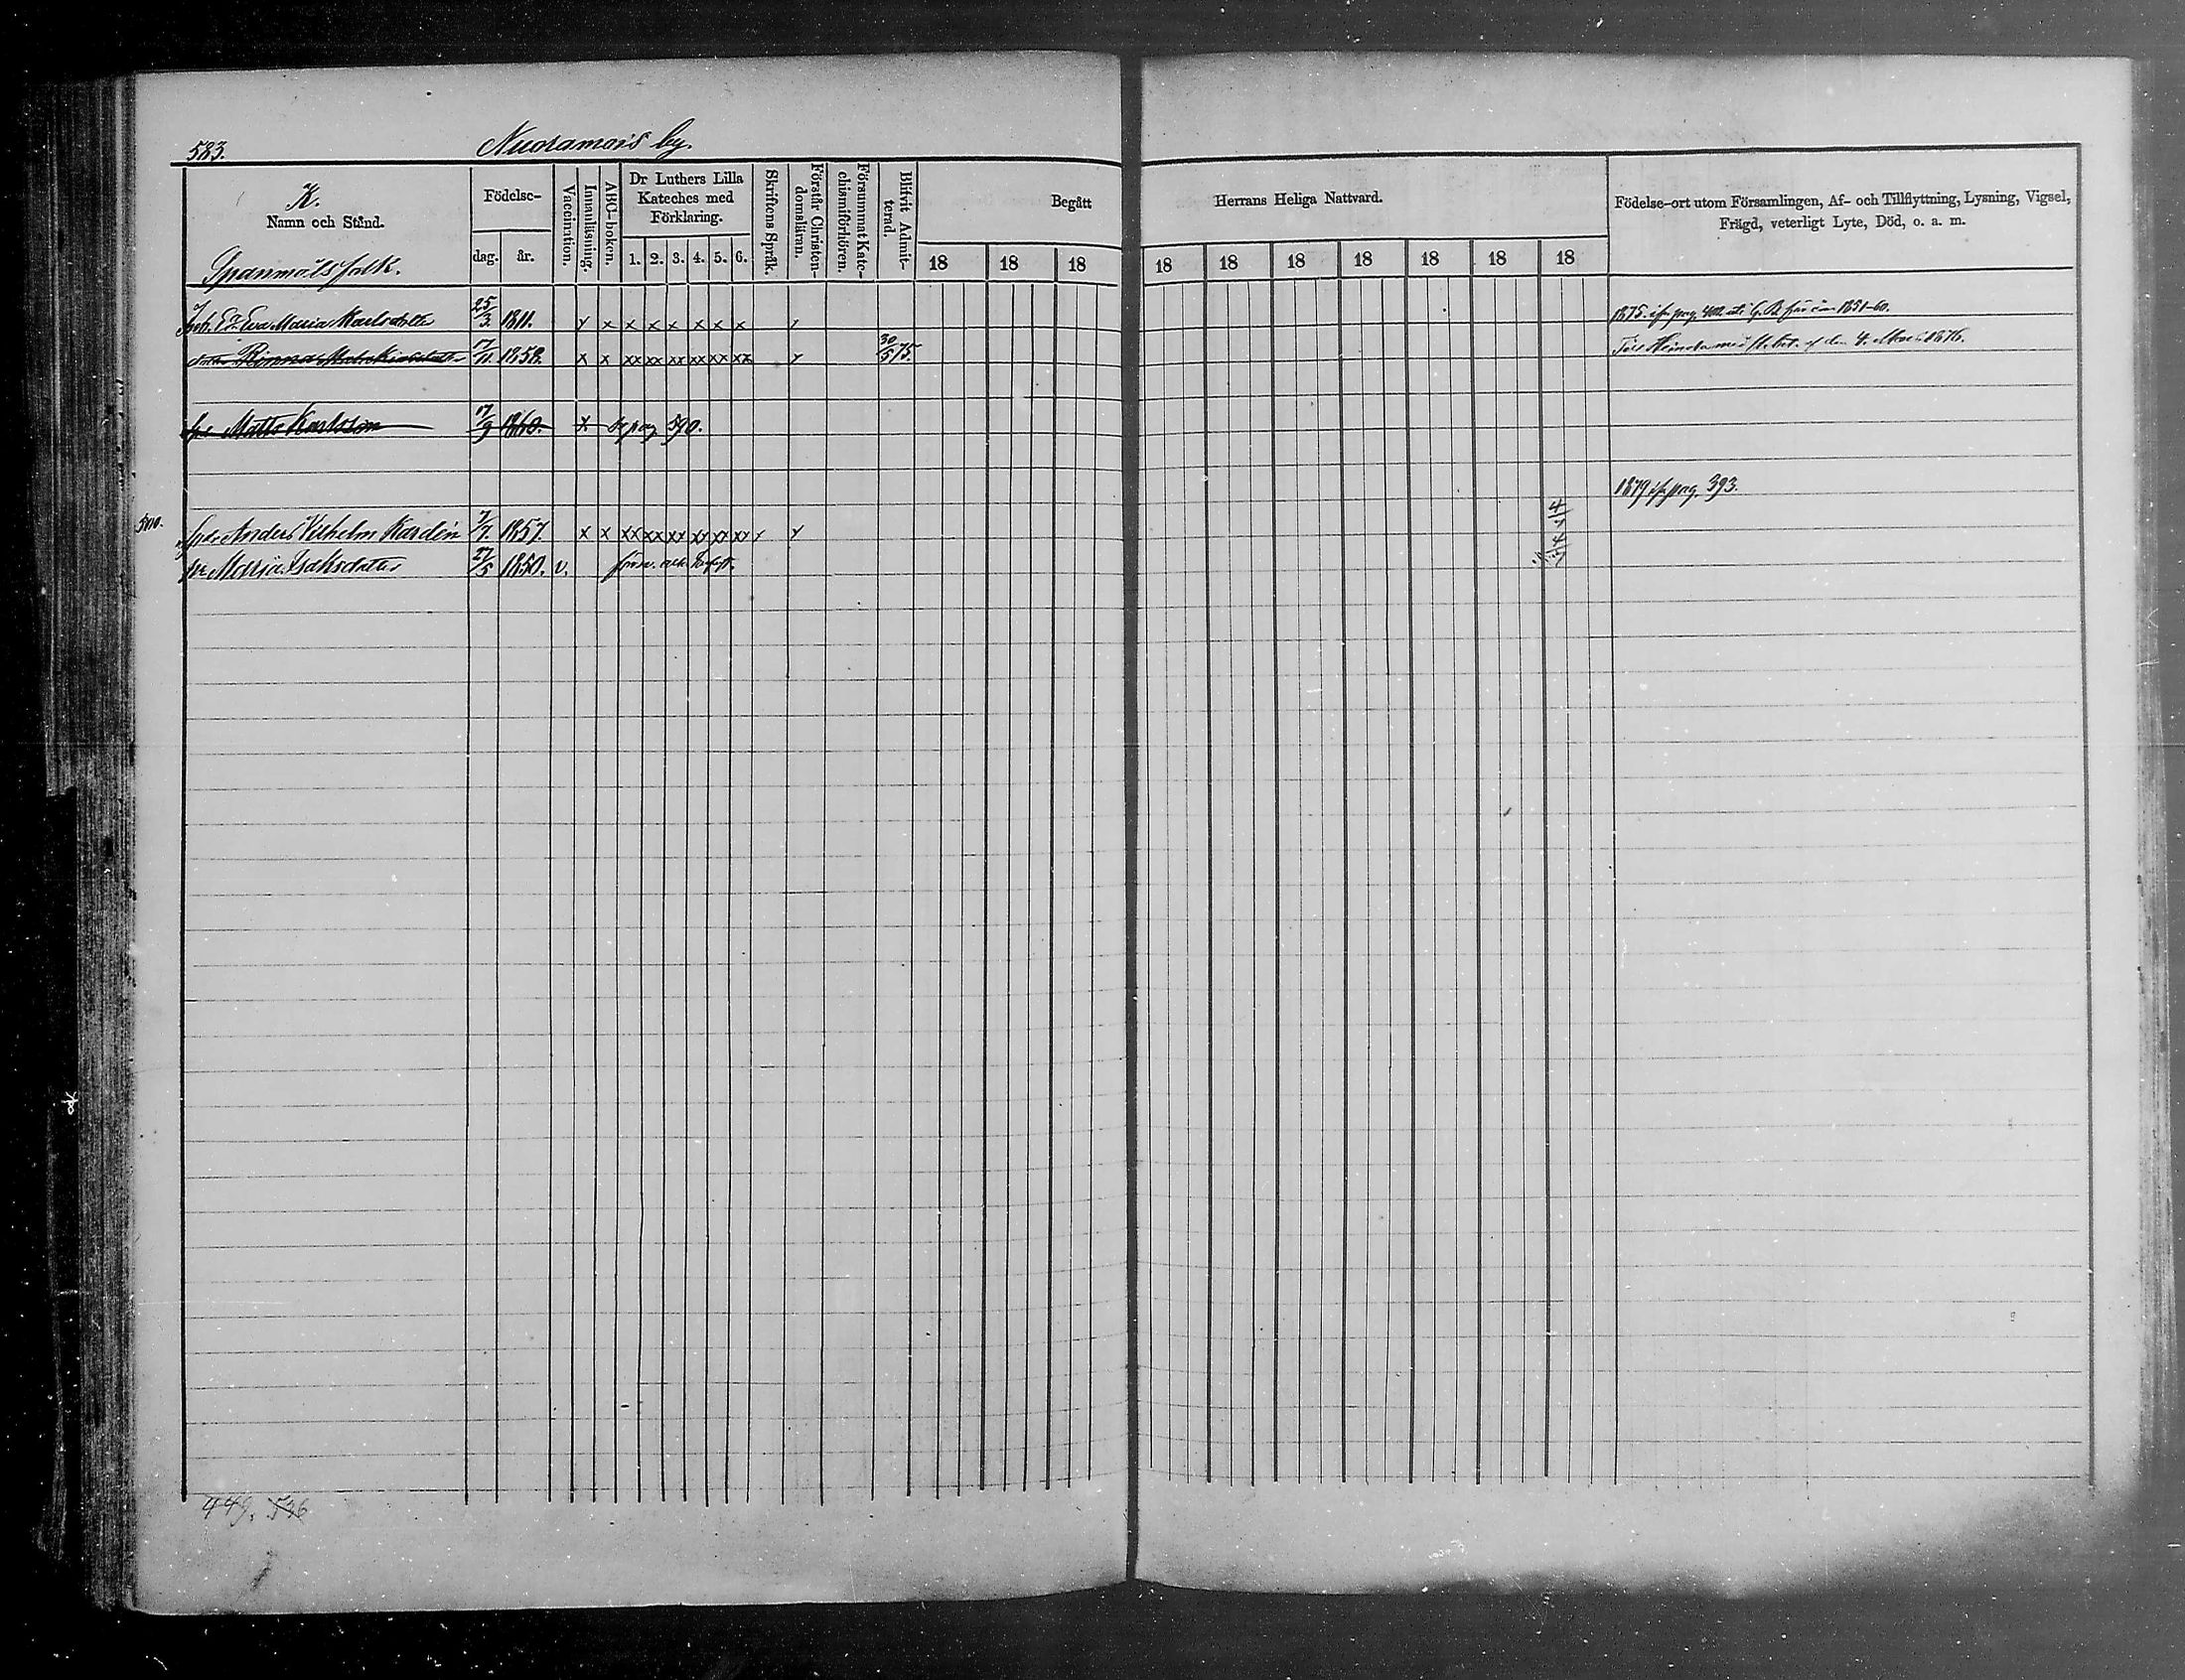 583. Nuoramois by.
K.
Namn och Stånd.
Födelse-
dag. år.
Vaccination.
Innanläsning.
ABC-boken.
Dr Luthers Lilla Kateches med Förklaring.
1. 2. 3. 4. 5. 6.
Skriftens Språk.
Förstår Christendomsläran.
Försummat Katechismiförhören.
Blifvit Admitterad.
Begått Herrans Heliga Nattvard.
18 18 18 18 18 18 18 18 18 18
Födelse-ort utom Församlingen, Af- och Tillflyttning, Lysning, Vigsel,
Frägd, veterligt Lyte, Död, o. a. m.
Spanmålsfolk.
Eva Maria Karlsdotter 25/3 1811. x x x x x x x x 1875. pag. 402 1851-60.
17/11 1858. x x xx xx xx xx xx xx 30/5 75. Till Heinola med fl. bet. af den 4. Mars 1876.
Matts Karlsson 17/9 1860. x pag 590.
1879 pag. 393.
Anders Vilhelm Kardén 7/7 1857. x x xx xx xx xx xx xx
Maria Isaksdotter 27/5 1850. v.
449. 546